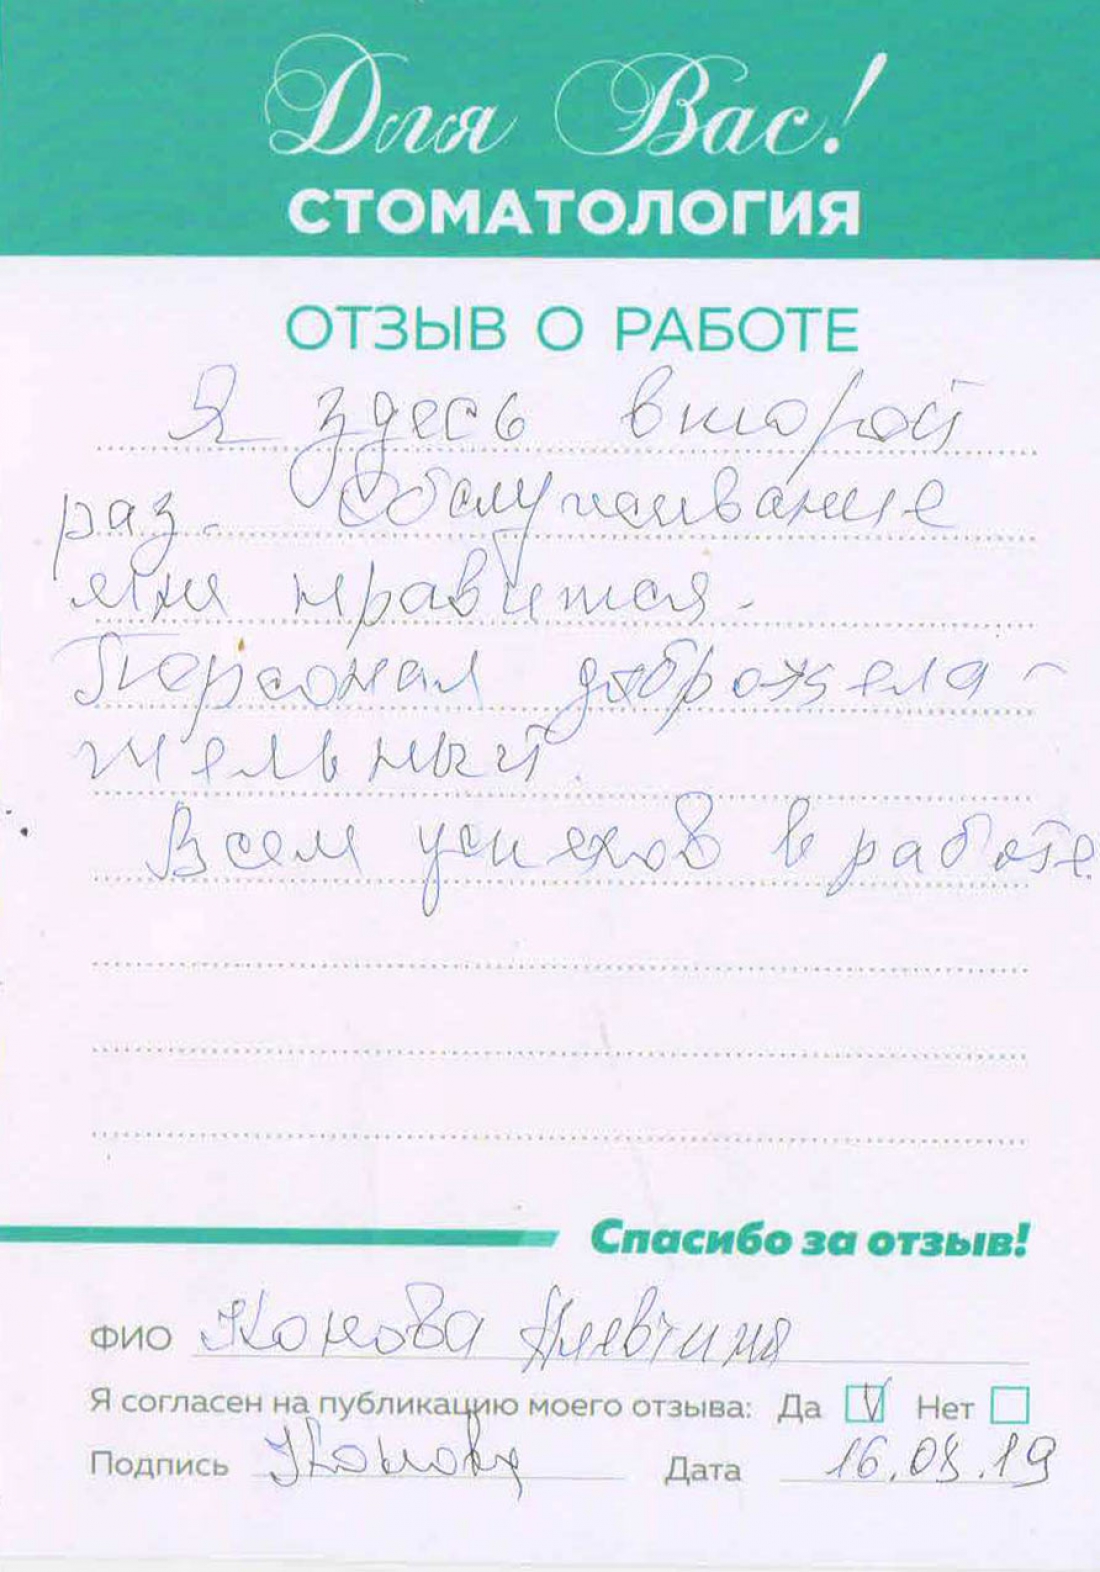 Для Вас!
СТОМАТОЛОГИЯ
ОТЗЫВ О РАБОТЕ
Я здесь второй
раз. Обслуживание
мне нравится.
Персонал доброжела-
тельный.
Всем успехов в работе.
Спасибо за отзыв!
ФИО Конова Алевтина
Я согласен на публикацию моего отзыва: Да V Нет
Подпись Конова Дата 16.08.19